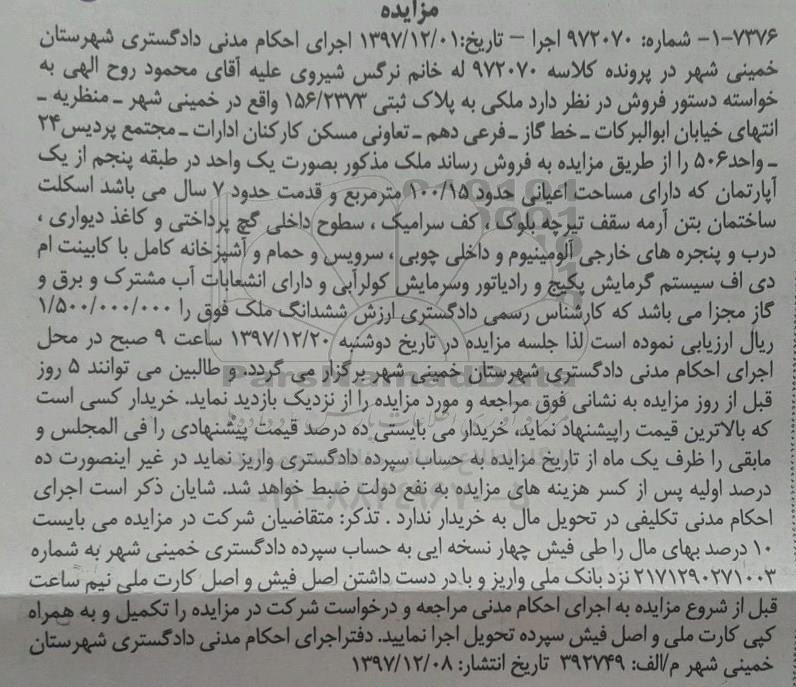 مزایده
۷۳۷۶-۱- شماره: ۹۷۲۰۷۰ اجرا – تاریخ:۱۳۹۷/۱۲/۰۱ اجرای احکام مدنی دادگستری شهرستان
خمینی شهر در پرونده کلاسه ۹۷۲۰۷۰ له خانم نرگس شیروی علیه آقای محمود روح الهی به
خواسته دستور فروش در نظر دارد ملکی به پلاک ثبتی ۱۵۶/۲۳۷۳ واقع در خمینی شهر ـ منظریه ـ
انتهای خیابان ابوالبرکات ـ خط گاز ـ فرعی دهم ـ تعاونی مسکن کارکنان ادارات ـ مجتمع پردیس۲۴
ـ واحد۵۰۶ را از طریق مزایده به فروش رساند ملک مذکور بصورت یک واحد در طبقه پنجم از یک
آپارتمان که دارای مساحت اعیانی حدود ۱۰۰/۱۵ مترمربع و قدمت حدود ۷ سال می باشد اسکلت
ساختمان بتن آرمه سقف تیرچه بلوک ، کف سرامیک ، سطوح داخلی گچ پرداختی و کاغذ دیواری ،
درب و پنجره های خارجی آلومینیوم و داخلی چوبی ، سرویس و حمام و آشپزخانه کامل با کابینت ام
دی اف سیستم گرمایش پکیج و رادیاتور وسرمایش کولرآبی و دارای انشعابات آب مشترک و برق و
گاز مجزا می باشد که کارشناس رسمی دادگستری ارزش ششدانگ ملک فوق را ۱/۵۰۰/۰۰۰/۰۰۰
ریال ارزیابی نموده است لذا جلسه مزایده در تاریخ دوشنبه ۱۳۹۷/۱۲/۲۰ ساعت ۹ صبح در محل
اجرای احکام مدنی دادگستری شهرستان خمینی شهر برگزار می گردد. و طالبین می توانند ۵ روز
قبل از روز مزایده به نشانی فوق مراجعه و مورد مزایده را از نزدیک بازدید نماید. خریدار کسی است
که بالاترین قیمت راپیشنهاد نماید، خریدار می بایستی ده درصد قیمت پیشنهادی را فی المجلس و
مابقی را ظرف یک ماه از تاریخ مزایده به حساب سپرده دادگستری واریز نماید در غیر اینصورت ده
درصد اولیه پس از کسر هزینه های مزایده به نفع دولت ضبط خواهد شد. شایان ذکر است اجرای
احکام مدنی تکلیفی در تحویل مال به خریدار ندارد . تذکر: متقاضیان شرکت در مزایده می بایست
۱۰ درصد بهای مال را طی فیش چهار نسخه ایی به حساب سپرده دادگستری خمینی شهر به شماره
۲۱۷۱۲۹۰۲۷۱۰۰۳ نزد بانک ملی واریز و با در دست داشتن اصل فیش و اصل کارت ملی نیم ساعت
قبل از شروع مزایده به اجرای احکام مدنی مراجعه و درخواست شرکت در مزایده را تکمیل و به همراه
کپی کارت ملی و اصل فیش سپرده تحویل اجرا نمایید. دفتراجرای احکام مدنی دادگستری شهرستان
خمینی شهر م/الف: ۳۹۲۷۴۹ تاریخ انتشار: ۱۳۹۷/۱۲/۰۸
ParsNamadData